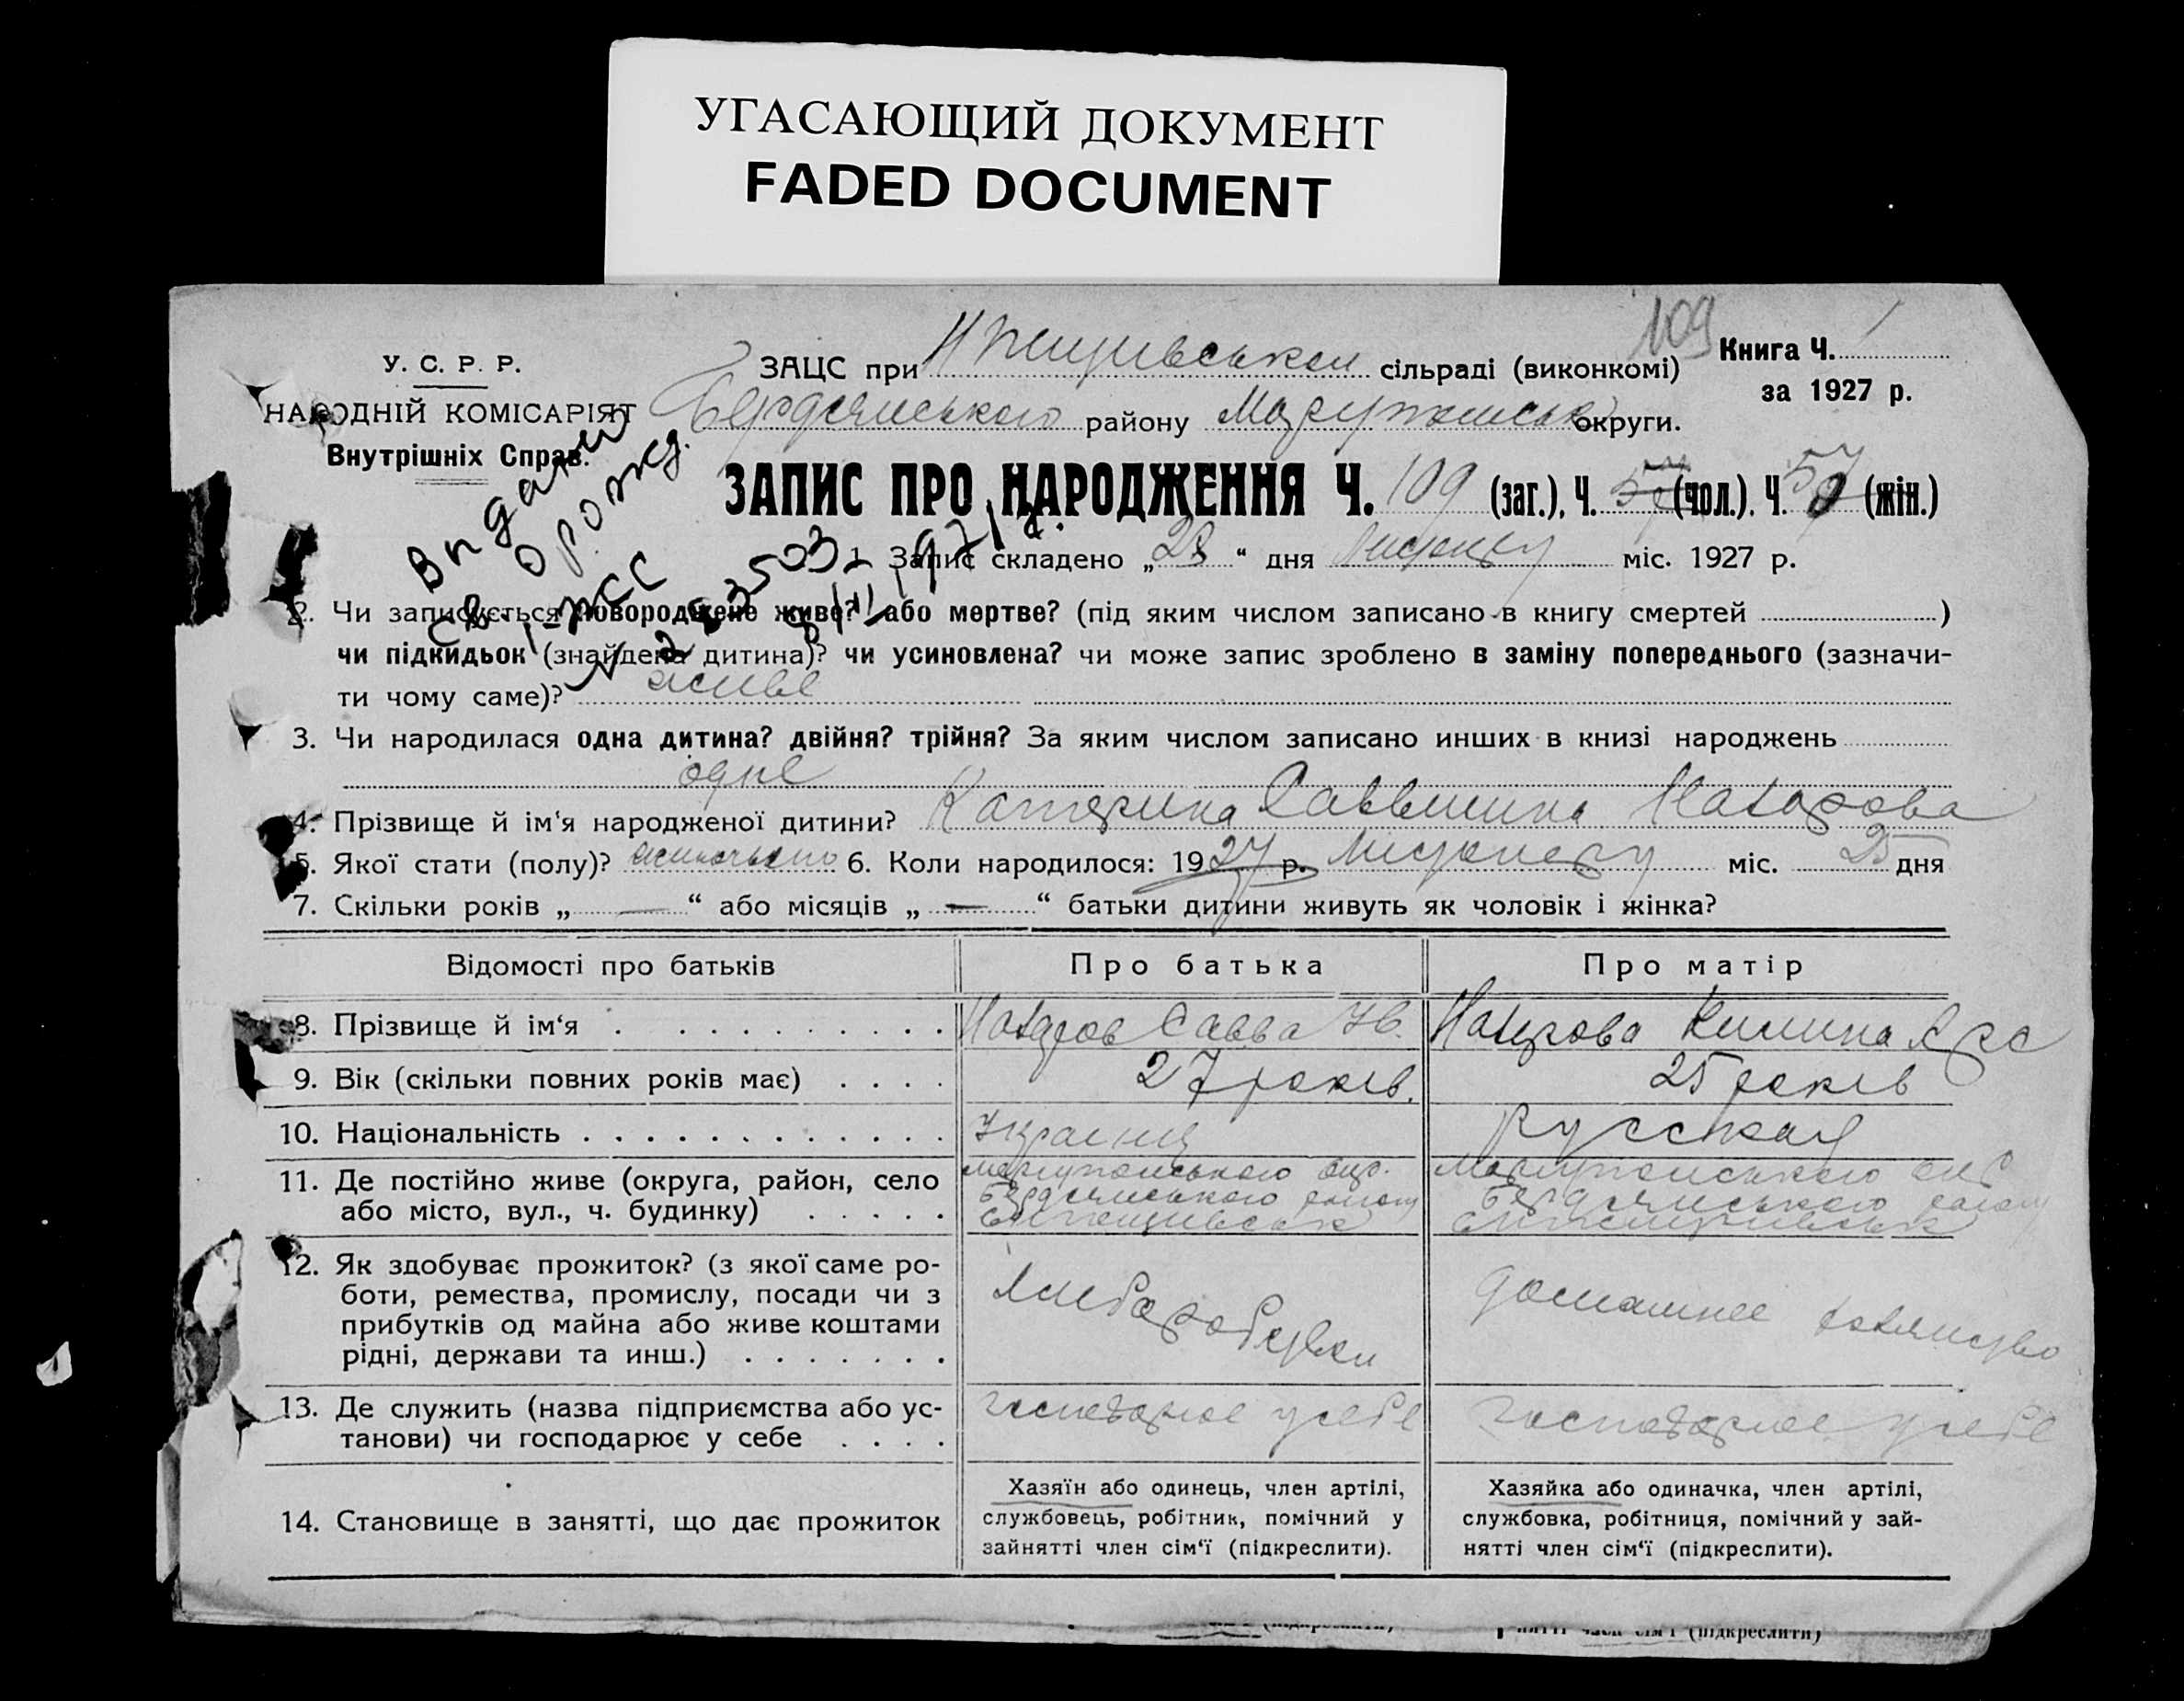 УГАСАЮЩИЙ ДОКУМЕНТ
FADED DOCUMENT
109
У. С. Р. Р.
НАРОДНІЙ КОМІСАРІЯТ
Внутрішніх Справ.
ЗАЦС при сільраді (виконкомі)
Книга Ч. 1
за 1927 р.
Бердянського району Маріупольськ округи.
ЗАПИС ПРО НАРОДЖЕННЯ Ч. 109 (заг.), Ч. 57 (чол.). Ч. 57 (жін.)
Выдано
св. о рожд.
1-ЖС
№ 283503
8/III 1971 г.
1. Запис складено „28“ дня міс. 1927 р.
2. Чи записується новороджене живе? або мертве? (під яким числом записано в книгу смертей )
чи підкидьок (знайдена дитина)? чи усиновлена? чи може запис зроблено в заміну попереднього (зазначи-
ти чому саме)? живе
3. Чи народилася одна дитина? двійня? трійня? За яким числом записано инших в книзі народжень
одне
4. Прізвище й ім‘я народженої дитини? Катерина Саввишна Назарова
5. Якої стати (полу)? 6. Коли народилося: 1927 р. міс. 25 дня
7. Скільки років „ — “ або місяців „ — “ батьки дитини живуть як чоловік і жінка?
Відомості про батьків Про батька Про матір
8. Прізвище й ім‘я Назаров Савва Ив. Назарова
9. Вік (скільки повних років має) 27 років. 25 років
10. Національність Украинц Русская
11. Де постійно живе (округа, район, село
або місто, вул., ч. будинку)
Маріупольського окр.
Бердянського району
Маріупольського окр
Бердянського району
12. Як здобуває прожиток? (з якої саме ро-
боти, ремества, промислу, посади чи з
прибутків од майна або живе коштами
рідні, держави та инш.)
домашнее
13. Де служить (назва підприємства або ус-
танови) чи господарює у себе
господарює у себе
господарює у себе
14. Становище в занятті, що дає прожиток
Хазяїн або одинець, член артілі,
службовець, робітник, помічний у
зайнятті член сім‘ї (підкреслити).
Хазяйка або одиначка, член артілі,
службовка, робітниця, помічний у зай-
нятті член сім‘ї (підкреслити).
(підкреслити)
нятті член сім‘ї (підкреслити)